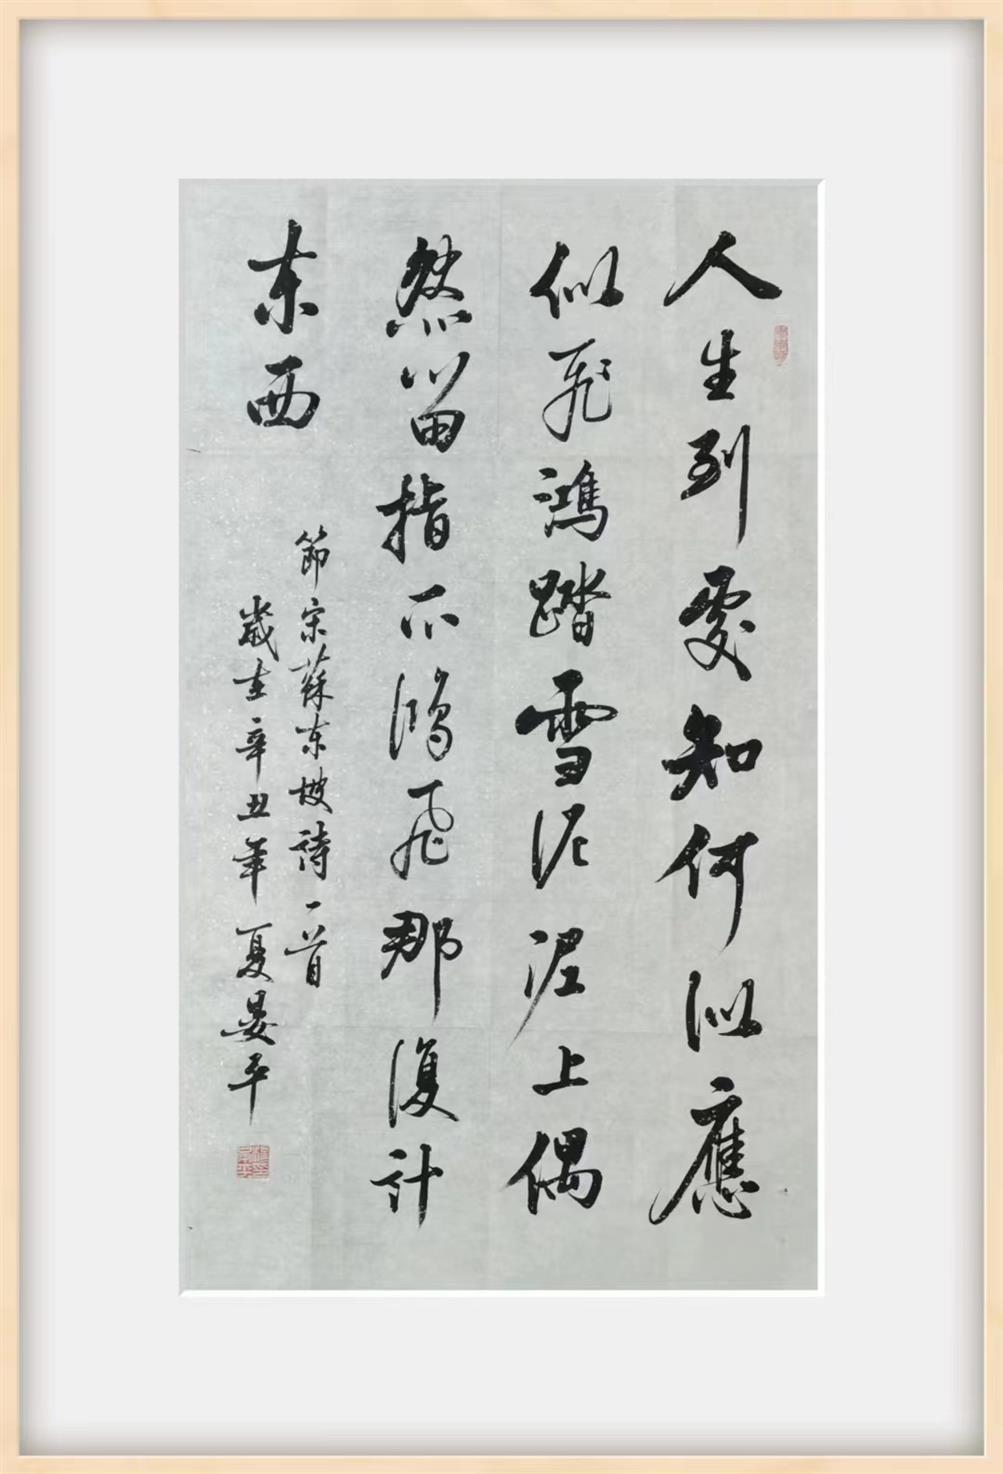 人生到處知何似應
似飛鴻踏雪泥泥上偶
然留指爪鴻飛那復計
東西
節宋蘇東坡詩一首
歲在辛丑年夏晏平